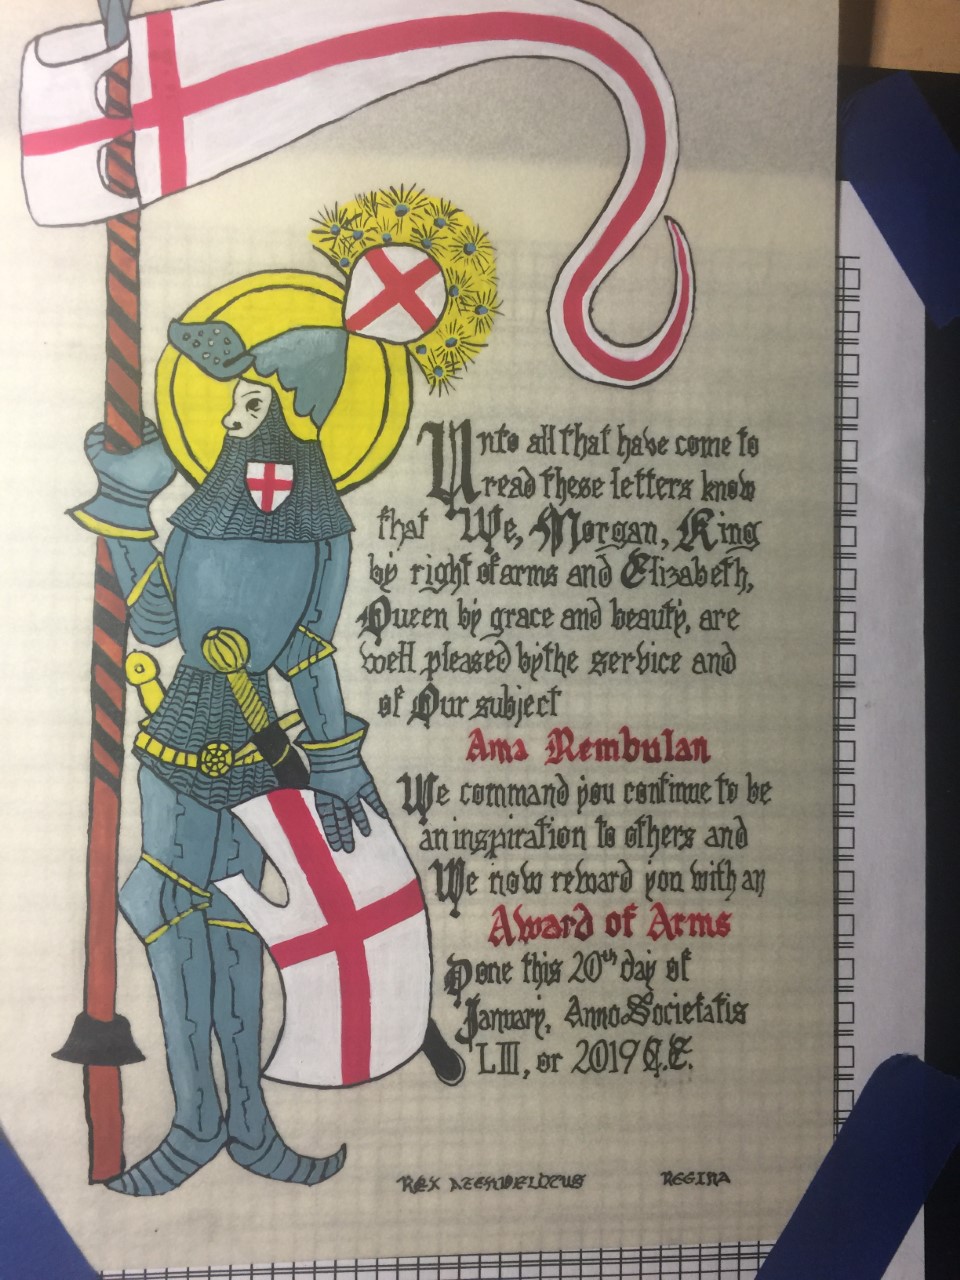 Unto all that have come to
read these letters know
that We, Morgan, King
by right of arms and Elizabeth,
Queen by grace and beauty, are
well pleased by the service and
of Our subject
Ama Rembulan
We command you continue to be
an inspiration to others and
We now reward you with an
Award of Arms
Done this 20th day of
January, Anno Societatis
LIII, or 2019 C.E.
REX ATENVELDTUS REGINA